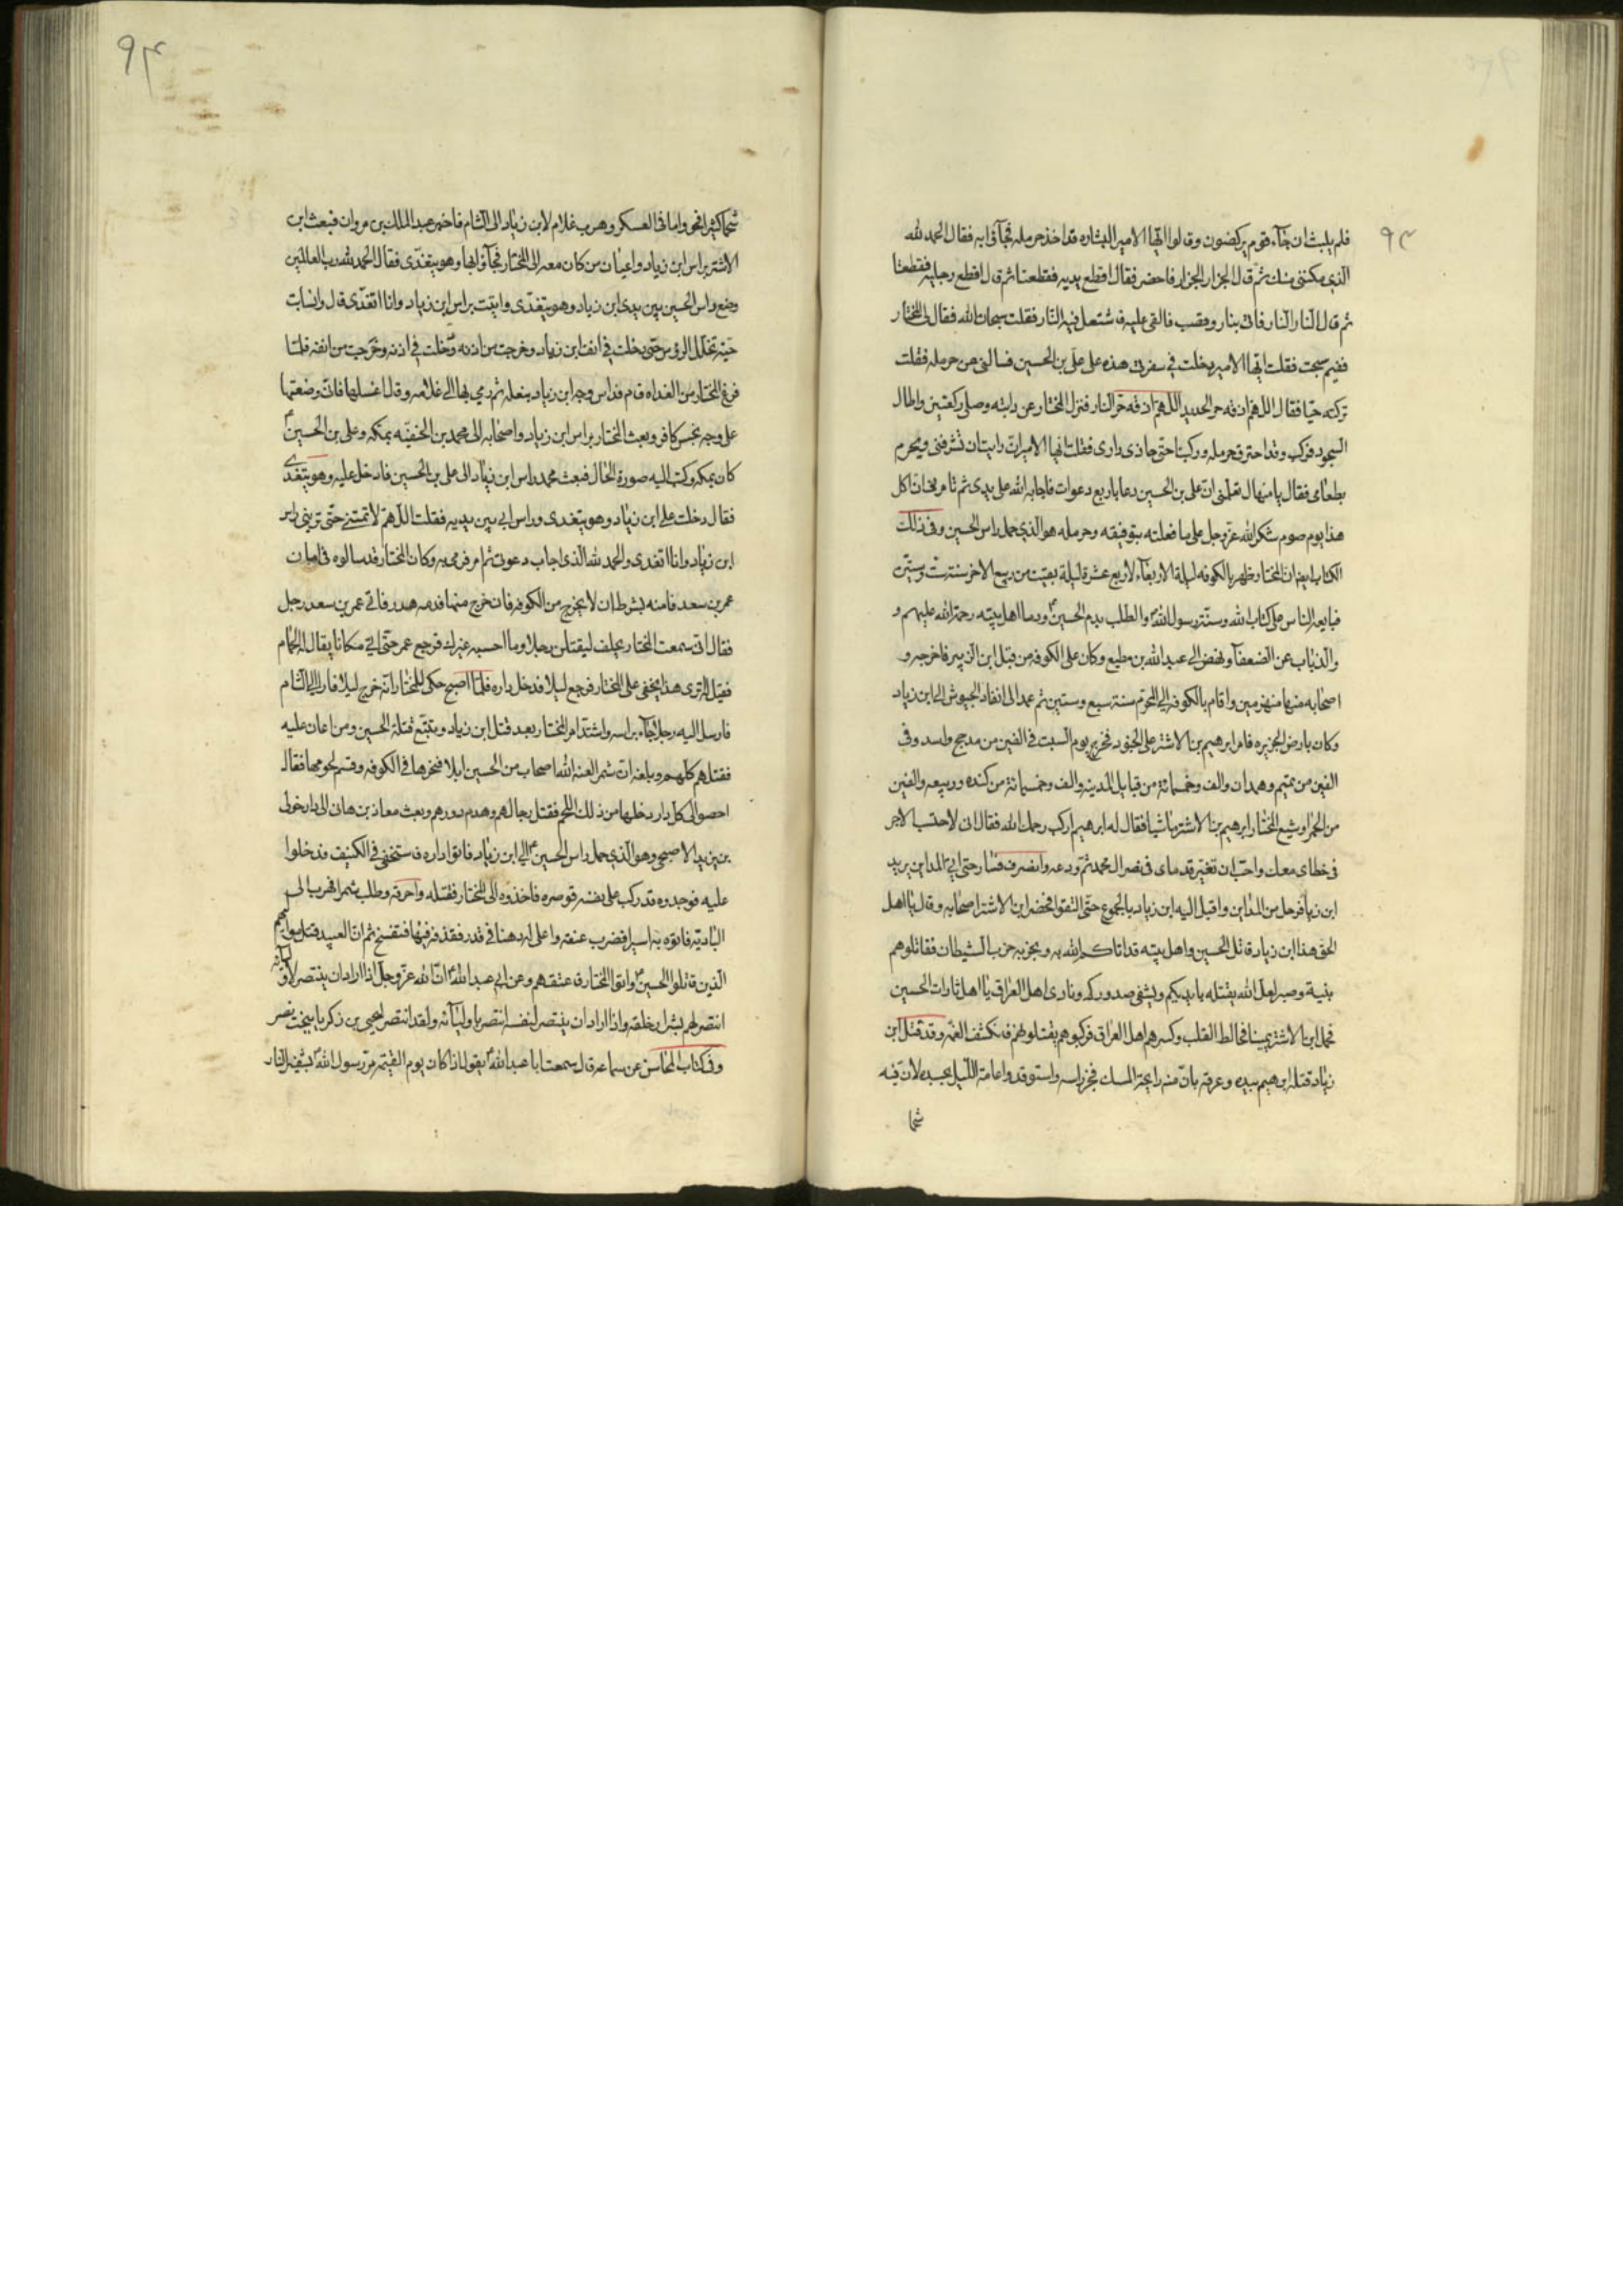 ٩٣
فلم يلبث ان جآء قوم يركضون وقالوا ايّها الامير البشاره قد اخذ حرمله فجآؤا به فقال الحمد لله
الذي مكنني منك ثم قال الجزار الجزار فاحضر فقال اقطع يديه فقطعتا ثم قال اقطع رجليه فقطعتا
ثم قال النار النار فاتى بنار وقصب فالقى عليه فاشتعل فيه النار فقلت سبحان الله فقال لى المختار
ففيم سبحت فقلت ايّها الامير دخلت في سفرتى هذه على علىّ بن الحسين فسالنى عن حرمله فقلت
تركته حيّا فقال اللهم اذقه حر الحديد اللهم اذقه حرّ النار فنزل المختار عن دابته وصلى ركعتين واطال
السجود فركب وقد احترق حرمله وركبنا حتى حاذى دارى فقلت ايها الامير ان رايت ان تشرفنى ويحرم
بطعامى فقال يا منهال تعلمنى انّ على بن الحسين دعا باربع دعوات فاجابه الله على يدى ثم تامرنى ان اكل
هذا يوم صوم شكر الله عزّ وجل على ما فعلته بتوفيقه وحرمله هو الذي حمل راس الحسين وفى ذلك
الكتاب ايضا ان المختار ظهر بالكوفه ليلة الاربعآء لاربع عشرة ليلة بقيت من ربيع الاخر سنة ست وستين
فبايعه الناس على كتاب الله وسنّة رسول الله ص والطلب بدم الحسين ع ودما اهل بيته رحمة الله عليهم و
والذباب عن الضعفآ ونهض الى عبد الله بن مطيع وكان على الكوفه من قبل ابن الزبير فاخرجه و
اصحابه منها منهزمين واقام بالكوفه الى المحرّم سنة سبع وستين ثم عمد الى انفاذ الجيوش الى ابن زياد
وكان بارض الجزيره فامر ابرهيم بن الاشتر على الجنود فخرج يوم السبت فى الفين من مذحج واسد وفى
الفين من تميم وهمدان والف وخمسمائة من قبايل المدينه والف وخمسمائة من كنده وربيعه والفين
من الحمرا وشيع المختار ابرهيم بن الاشتر ماشيا فقال له ابرهيم اركب رحمك الله فقال انى لاحتسب الاجر
فى خطاى معك واحبّ ان تغبّر قدماى فى نصر ال محمد ثم ودعه وانصرف فسار حتى اتى المداين يريد
ابن زياد فرحل من المداين واقبل اليه ابن زياد بالجموع حتى التقوا فحضر ابن الاشتر اصحابه وقال يا اهل
الحق هذا ابن زياد قاتل الحسين واهل بيته قد اتاكم الله به وبحزبه حزب الشيطان فقاتلوهم
بنية وصبر لعل الله يقتله بايديكم ويشفى صدوركم ونادى اهل العراق يا اهل ثارات الحسين
فحمل ابن الاشتر يمينا فخالط القلب وكسرهم اهل العراق فركبوهم يقتلونهم فانكشف الغمّة وقد قتل ابن
زياد قتله ابرهيم بيده وعرفه بانّ منه رايحة المسك فحز راسه واستوقدوا عامة الليل بجسده لان فيه
شما
٩٤
شما كثيرا فحووا ما فى العسكر وهرب غلام لابن زياد الى الشام فاخبر عبد الملك بن مروان فبعث ابن
الاشتر براس ابن زياد واعيان من كان معه الى المختار فجآؤا بها وهو يتغدّى فقال الحمد لله رب العالمين
وضع راس الحسين بين يدى ابن زياد وهو يتغدّى واتيت براس ابن زياد وانا اتغدّى قال وانسابت
حيّة تخلل الرؤس حتى دخلت في انف ابن زياد وخرجت من اذنه ودخلت في اذنه وخرجت من انفه فلما
فرغ المختار من الغداه قام فداس وجه ابن زياد بنعله ثم رمى بها الى غلامه وقال اغسلها فانّى وضعتها
على وجه نجس كافر وبعث المختار براس ابن زياد واصحابه الى محمد بن الحنفيّه بمكه وعلى بن الحسين ع
كان بمكه وكتب اليه صورة الحال فبعث محمد راس ابن زياد الى على بن الحسين فادخل عليه وهو يتغدّى
فقال دخلت على ابن زياد وهو يتغدى وراس ابى بين يديه فقلت اللهم لا تمتنى حتى ترينى راس
ابن زياد وانا اتغدى والحمد لله الذى اجاب دعوتى ثم امر فرمى به وكان المختار قد سالوه فى امان
عمر بن سعد فامنه بشرط ان لا يخرج من الكوفه فان خرج منها فدمه هدر فاتى عمر بن سعد رجل
فقال انى سمعت المختار يحلف ليقتلن رجلا وما احسبه غيرك فرجع عمر حتى اتى مكانا يقال له الحمّام
فقيل له ترى هذا يخفى على المختار فرجع ليلا فدخل داره فلمّا اصبح حكى للمختار انّه خرج ليلا فارا الى الشام
فارسل اليه رجلا فجآءه براسه واشتدّ امر المختار بعد قتل ابن زياد وتتبّع قتلة الحسين ومن اعان عليه
فقتلهم كلهم وبلغه انّ شمرا لعنه الله اصحاب من الحسين ابلا فنحرها فى الكوفه وقسم لحومها فقال
احصوا لى كل دار دخلها من ذلك اللحم فقتل رجالهم وهدم دورهم وبعث معاذ بن هانى الى دار خولى
بن يزيد الاصبحى وهو الذي حمل راس الحسين ع الى ابن زياد فاتوا داره فاستخفى فى الكنيف فدخلوا
عليه فوجدوه قد ركب على نفسه قوصره فاخذوه الى المختار فقتله واحرقه وطلب شمرا فهرب الى
الباديّه فاتوه به اسيرا فضرب عنقه واغلى له دهنا فى قدر فقذفه فيها فتفسخ ثم انّ العبيد قتلوا مواليهم
الذين قاتلوا الحسين ع واتوا المختار فاعتقهم وعن ابى عبد الله ع انّ الله عزّ وجلّ اذا اراد ان ينتصر لاوليآئه
انتصر لهم بشرار خلقه واذا اراد ان ينتصر لنفسه انتصر باوليآئه ولقد انتصر ليحيى بن زكريا ببخت نصر
وفى كتاب المحاسن عن سماعه قال سمعت ابا عبد الله ع يقول اذا كان يوم القيمه مرّ رسول الله ص بشفير النار